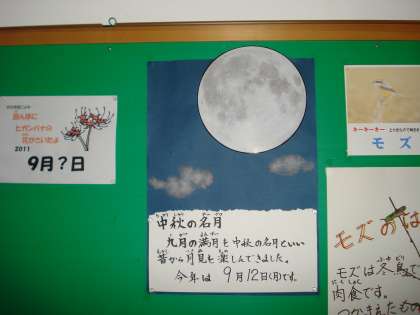 田んぼに
ヒガンバナの
花がさいたよ
2011
9月?日
中秋の名月
九月の満月を中秋の名月といい
昔から月見を楽しんできました。
今年は 9月12日(月)です。
キーキーキー
モズ
モズのは
モズは冬鳥で
肉食です。
つかまえたもの